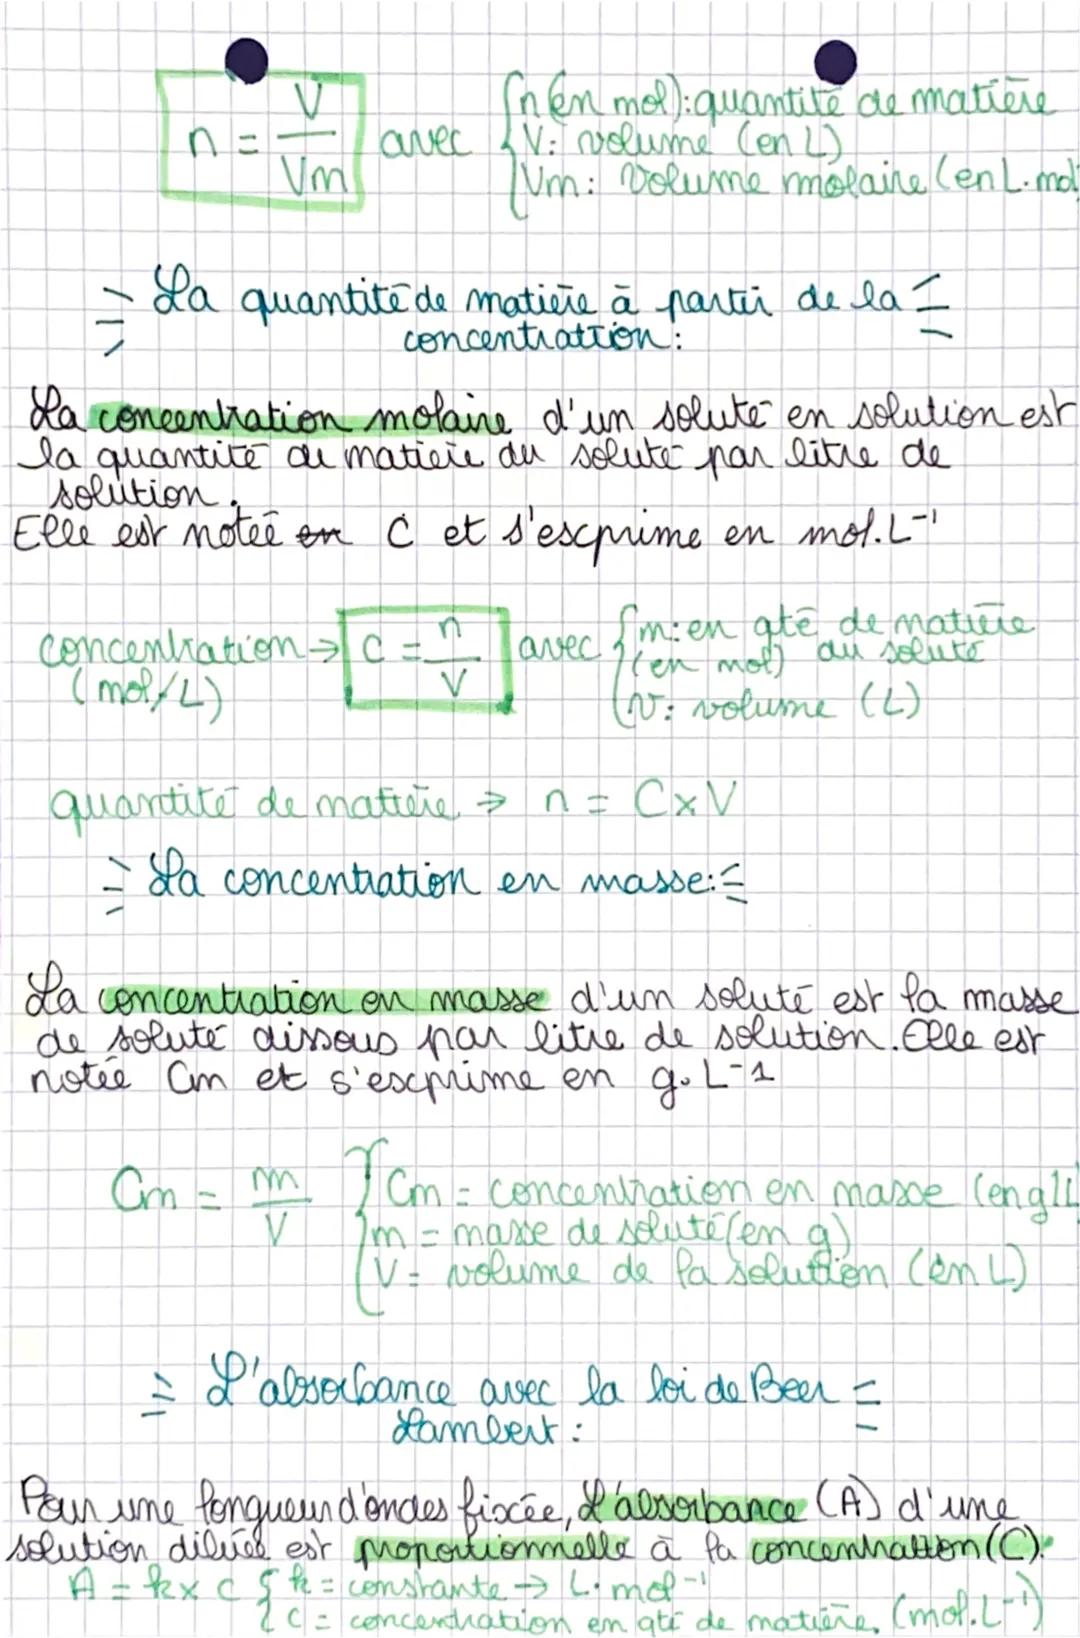 n = V/Vm avec { n (en mol): quantité de matière
V: volume (en L)
Vm: volume molaire (en L.mol
La quantité de matière à partir de la
concentration:
La concentration molaire d'un soluté en solution est
la quantité de matière du soluté par litre de
solution.
Elle est notée en C et s'escprime en mol.L⁻¹
concentration → C = n/V avec { m: en qté de matière
(mol/L) (en mol) du soluté
V: volume (L)
quantité de matière → n = C×V
La concentration en masse:
La concentration en masse d'un soluté est la masse
de soluté dissous par litre de solution. Elle est
notée Cm et s'escprime en g.L-1
Cm = m/V { Cm = concentration en masse (en g/L
m = masse de soluté (en g)
V = volume de la solution (en L)
L'absorbance avec la loi de Beer
Lambert:
Pour une longueur d'ondes fixée, L'absorbance (A) d'une
solution diluée est proportionnelle à la concentration (C).
A = k × C { k = constante → L.mol⁻¹
C = concentration en qté de matière. (mol.L⁻¹)